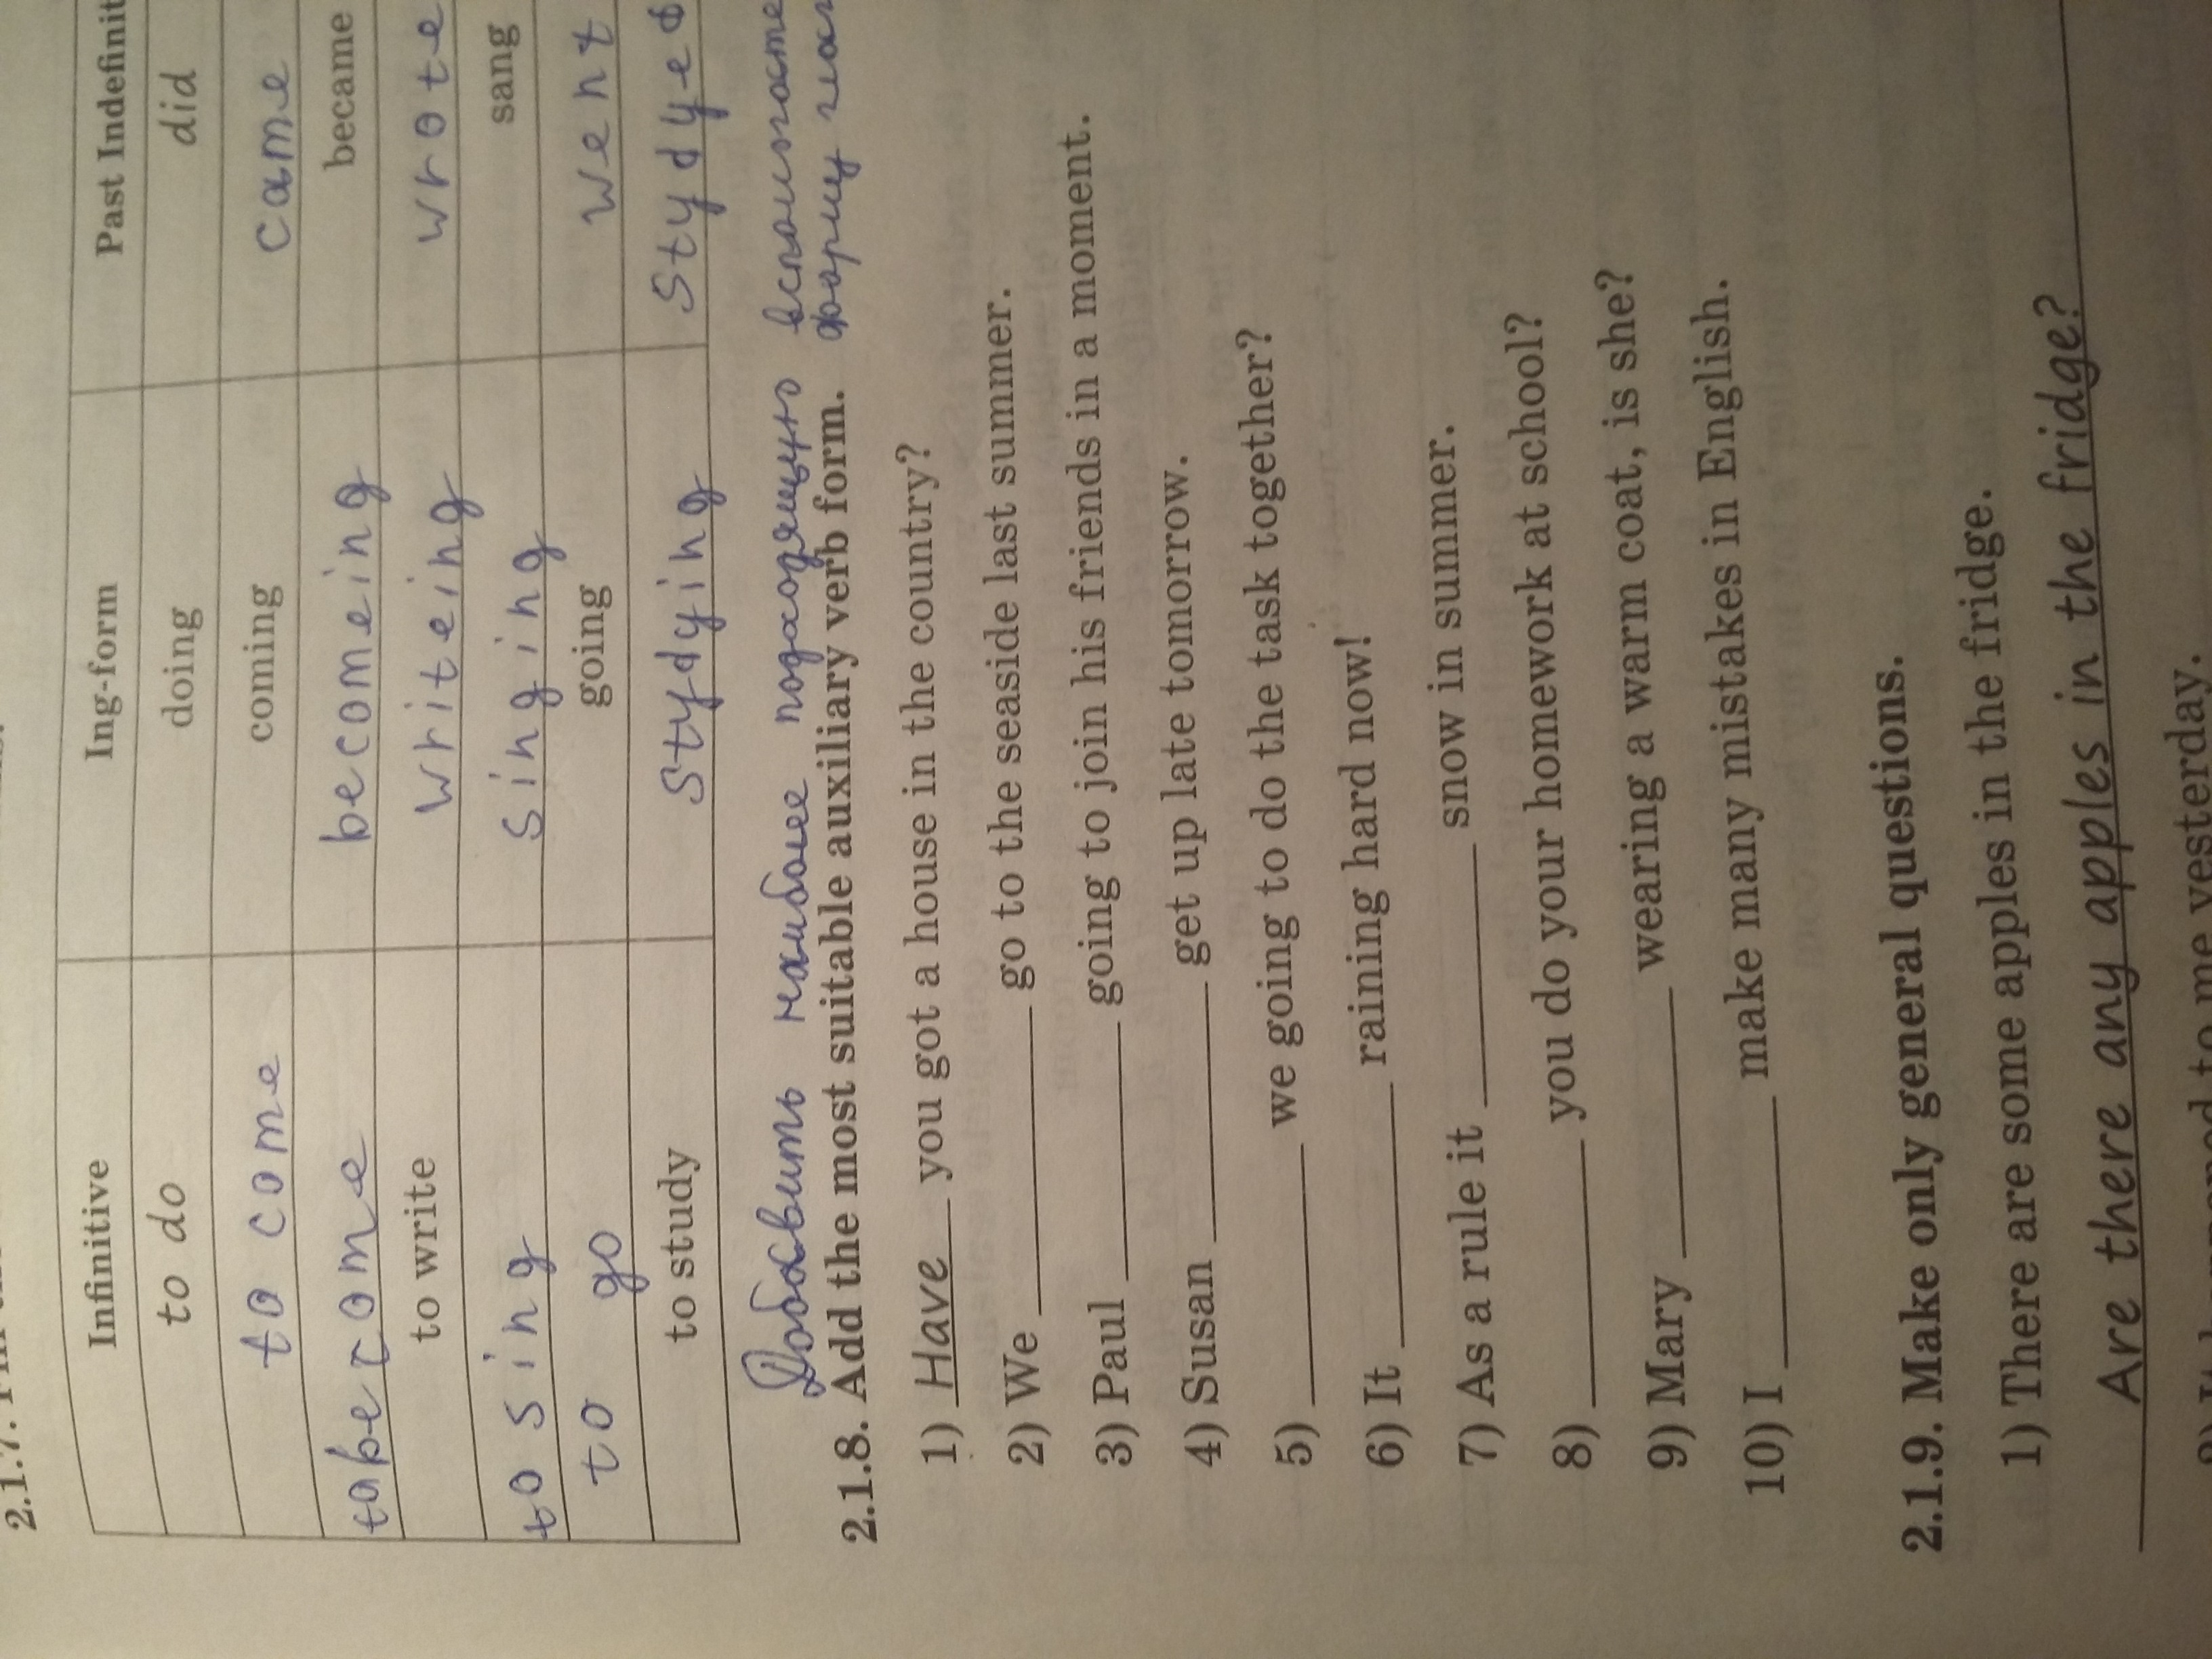 2.1.7.
Infinitive Ing-form Past Indefinit
to do doing did
to come coming came
tobecome becomeing became
to write writeing wrote
to sing singing sang
to go going went
to study stydying stydyed
Добавить наиболее подходящую вспомогате
форму глаг
2.1.8. Add the most suitable auxiliary verb form.
1) Have you got a house in the country?
2) We ______ go to the seaside last summer.
3) Paul ______ going to join his friends in a moment.
4) Susan ______ get up late tomorrow.
5) ______ we going to do the task together?
6) It ______ raining hard now!
7) As a rule it ______ snow in summer.
8) ______ you do your homework at school?
9) Mary ______ wearing a warm coat, is she?
10) I ______ make many mistakes in English.
2.1.9. Make only general questions.
1) There are some apples in the fridge.
Are there any apples in the fridge?
to me yesterday.